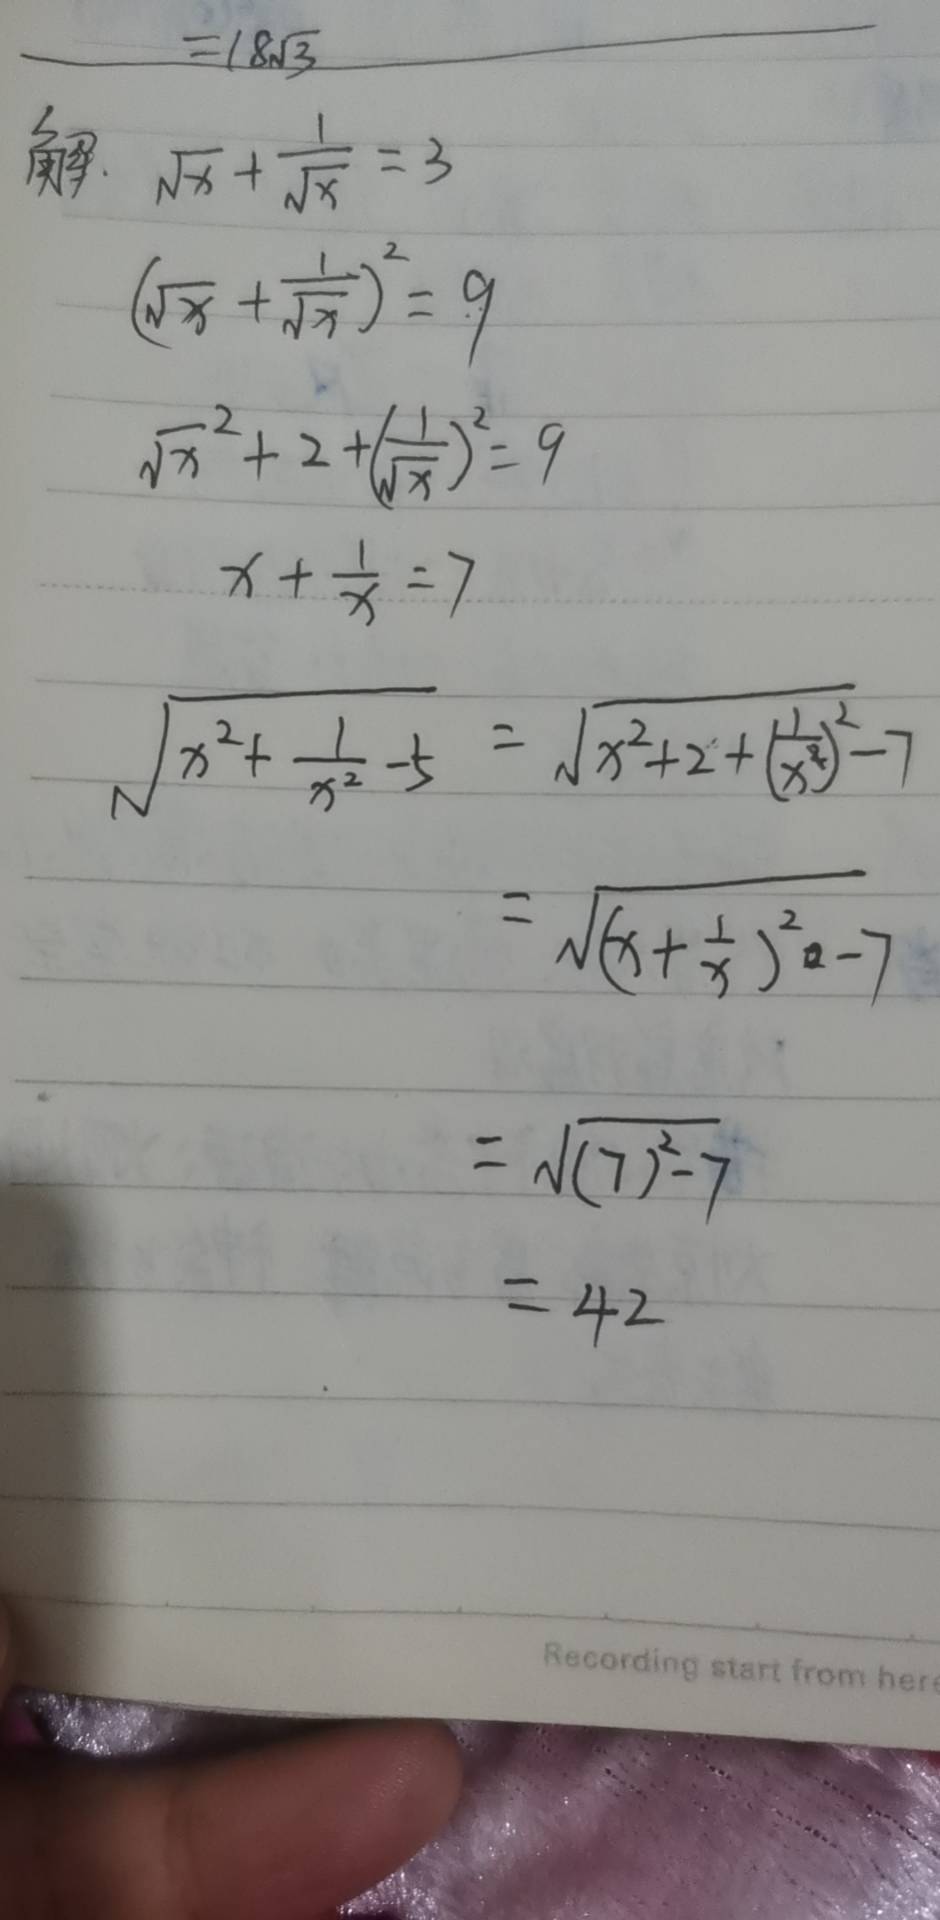 =18√3
解. √x + 1/√x = 3
(√x + 1/√x)² = 9
√x² + 2 + (1/√x)² = 9
x + 1/x = 7
√(x² + 1/x² - 5) = √(x² + 2 + (1/x)² - 7)
= √((x + 1/x)² - 7)
= √((7)² - 7)
= 42
Recording start from here